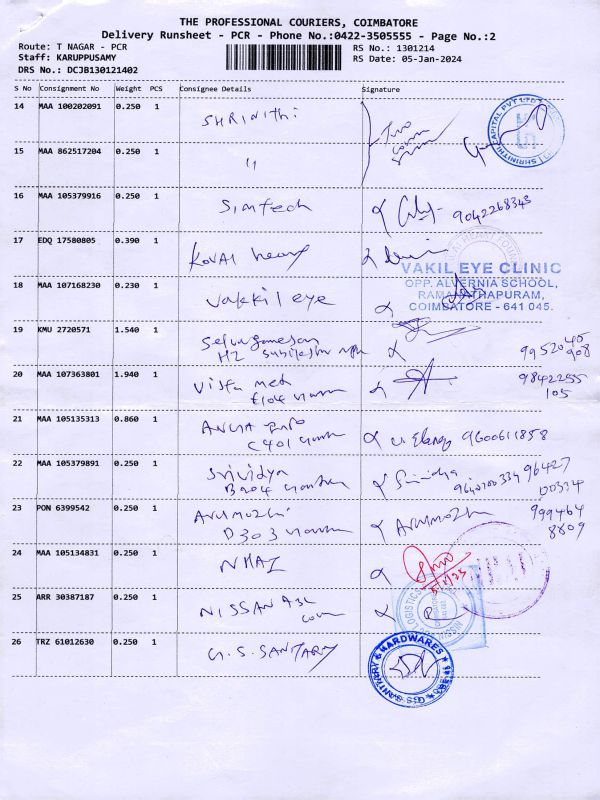 THE PROFESSIONAL COURIERS, COIMBATORE
Delivery Runsheet - PCR - Phone No.:0422-3505555 - Page No.:2
Route: T NAGAR - PCR
RS No.: 1301214
Staff: KARUPPUSAMY
RS Date: 05-Jan-2024
DRS No.: DCJB130121402
S No Consignment No Weight PCS Consignee Details Signature
14 MAA 100202091 0.250 1 SHRINITHI
SHRINITHI CAPITAL PVT LTD
15 MAA 862517204 0.250 1 "
16 MAA 105379916 0.250 1 Simtech 9042268343
17 EDQ 17580805 0.390 1 KOVAI heart
18 MAA 107168230 0.230 1 Vakkil eye
VAKIL EYE CLINIC
OPP. ALVERNIA SCHOOL,
RAMANATHAPURAM,
COIMBATORE - 641 045.
19 KMU 2720571 1.540 1
H2
9952045
908
20 MAA 107363801 1.940 1 Vista med
E104
9842255
105
21 MAA 105135313 0.860 1 Info
C401
9600611858
22 MAA 105379891 0.250 1 Srividya
B204
23 PON 6399542 0.250 1 Arumozhi Arumozhi
D303
999464
8809
24 MAA 105134831 0.250 1 NHAI
25 ARR 30387187 0.250 1 NISSAN
LOGISTICS
26 TRZ 61012630 0.250 1 G.S. SANITARY
G.S. SANITARY & HARDWARES